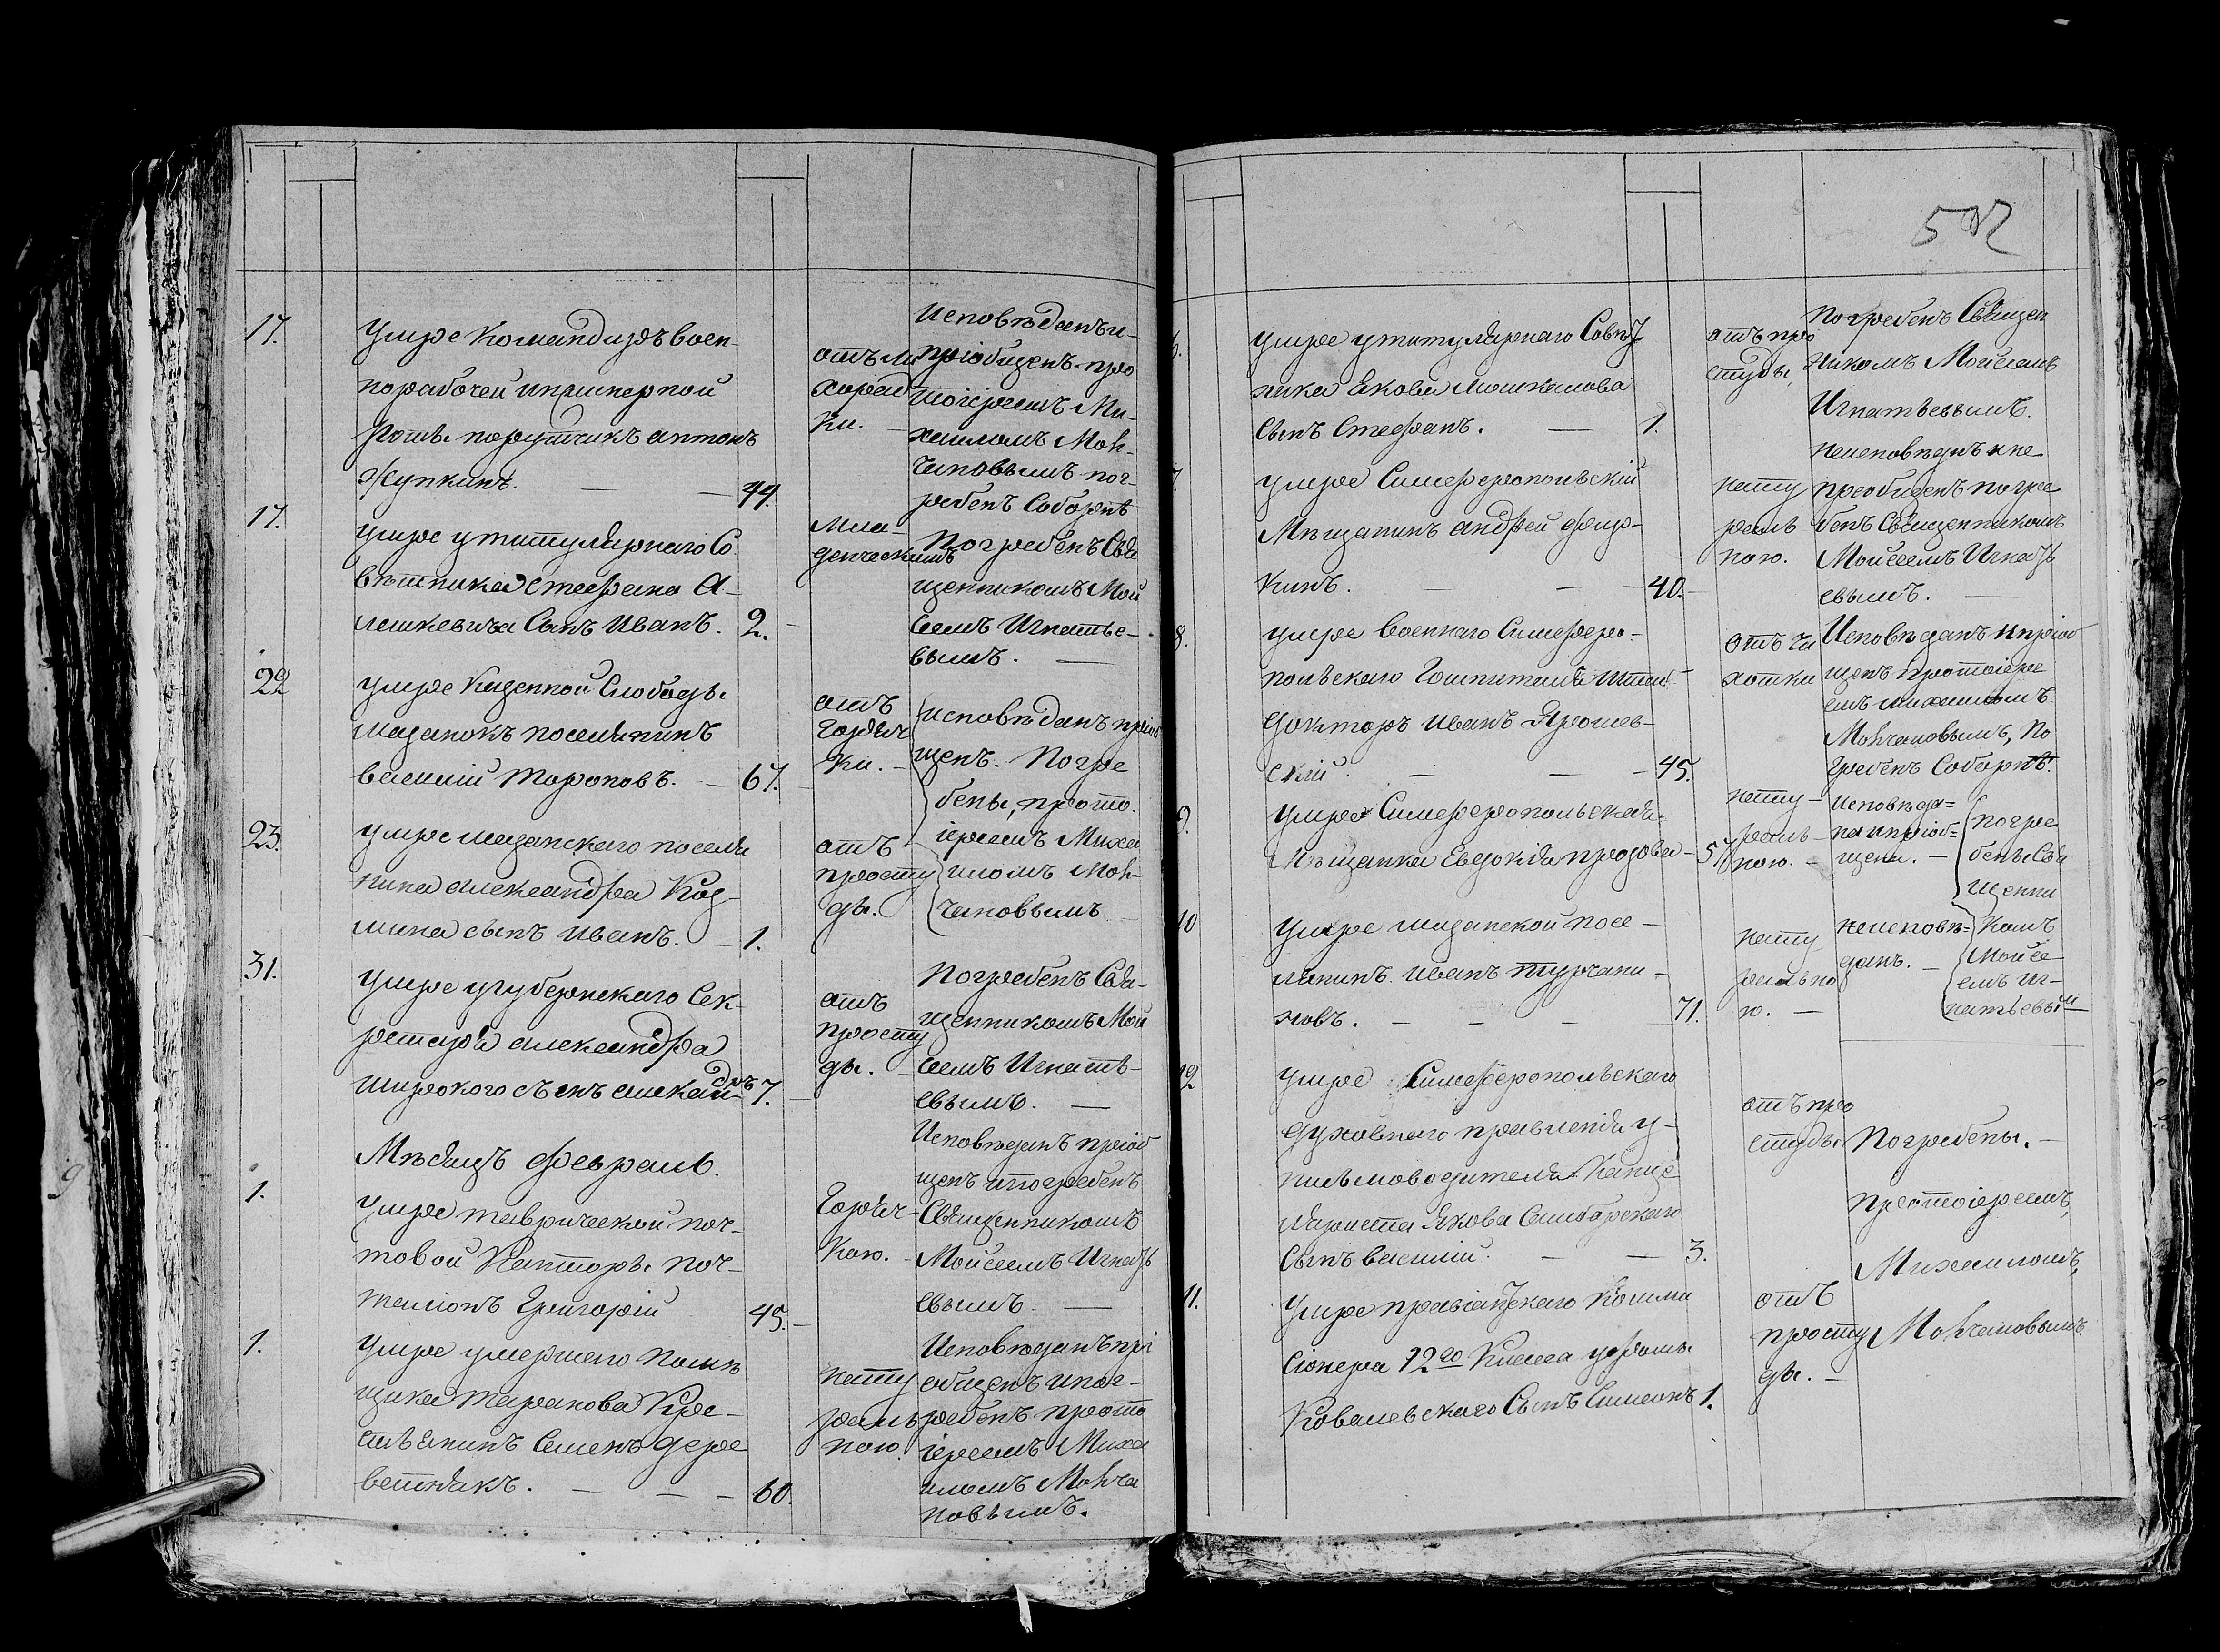 17.
умре Командиръ воен-
норабочей инженерной
роты порутчикъ антонъ
Жупкинъ. — — 44.
отъ ли
хорад
ки.
Исповѣданъ и
пріобщенъ про
тоіереемъ Ми-
хаиломъ Мол-
чановымъ пог-
ребенъ Соборнѣ
17.
умре у титулярнаго Со
вѣтника Стефана А-
лешкевича Сынъ Иванъ. 2.
Мла-
денческимъ
Погребенъ Свя
щенникомъ Мои
сеемъ Игнатье-
вымъ. —
22
умре Казенной Слободы
мазанокъ поселянинъ
василій Тороповъ. — 67.
отъ
горяч
ки. —
исповѣданъ пріоб
щенъ. Погре
бены, прото.
іереемъ Миха
иломъ Мол-
чановымъ.
23.
умре мазанскаго поселя
нина александра Коз-
мина сынъ иванъ. — 1.
отъ
просту
ды.
31.
умре у губернскаго Сек-
ретаря александра
широкого сынъ алекан- 7.
дръ
отъ
просту
ды. —
Погребенъ Свя-
щенникомъ Мои
сеемъ Игнать-
евымъ. —
Мѣсяцъ февраль.
1.
умре таврической поч-
товой Канторы поч-
талiонъ Григорій 45. —
Горяч-
кою. —
Исповѣданъ пріоб
щенъ и погребенъ
Священникомъ
Моисеемъ Игнать
евымъ. —
1.
умре умершего помѣ
щика Таранова Кре-
стьянинъ Семенъ дере
ветнякъ. — — — 60.
нату
раль
ною.
Исповѣданъ прі
общенъ и пог-
ребенъ прото
іереемъ Миха
иломъ Молча
новымъ.
502
6.
умре у титулярнаго Совѣт
ника Якова
сынъ Стефанъ. — 1.
отъ про
студы,
Погребенъ Священ
никомъ Моисеемъ
Игнатьевымъ.
7.
умре Симферопольскій
Мѣщанинъ андрей
кинъ. — — 40. —
нату
раль
ною.
неисповѣданъ и не
пріобщенъ погре
бенъ Священникомъ
Моисеемъ Игнать
евымъ. —
8.
умре военнаго Симферо-
польскаго Гошпиталя штаб
докторъ иванъ Ярошев-
скій. — — 45.
отъ ча
хотки
Исповѣданъ и пріоб
щенъ протоіере
емъ михаиломъ
Молчановымъ, По
гребенъ Соборнѣ.
9.
умре Симферопольская
Мѣщанка Евдокія 57
нату-
раль-
ною. —
исповѣда=
на и пріоб=
щена. —
погре
бены Свя
щенни
комъ
Моисе
емъ Иг-
натьевым
10
умре мазанской посе-
лянинъ иванъ турчани-
новъ. — — — 71.
нату
рально
ю. —
неисповѣ=
данъ. —
12
умре Симферопольскаго
духовнаго правленія у
письмоводителя Канце
ляриста Якова Самборскаго
Сынъ василій. — — 3.
отъ про
студы
Погребены. —
протоіереемъ,
Михаиломъ,
Молчановымъ.
11.
умре провіантскаго Комми
сіонера 12го Класса
Ковалевскаго Сынъ Симеонъ 1.
отъ
просту
ды. —